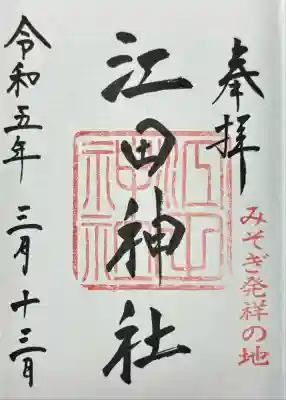 奉拝
みそぎ発祥の地
江田神社
令和五年 三月 十三日